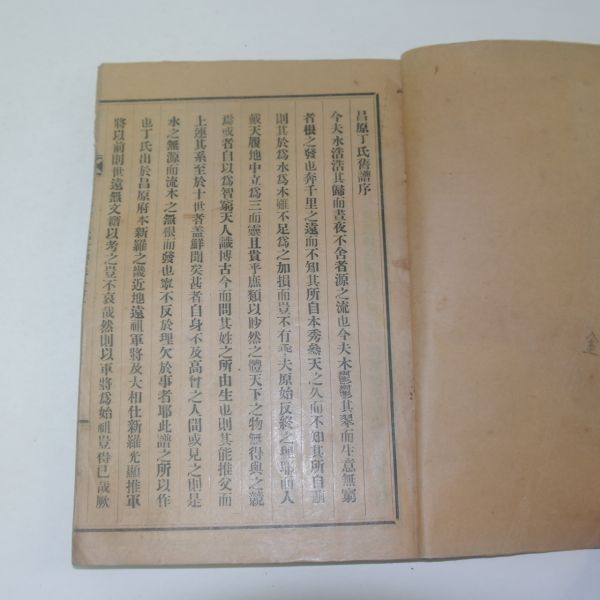 昌原丁氏舊譜序
今夫水浩浩其歸而晝夜不舍者源之流也今夫木鬱鬱其翠而生意無窮
者根之發也奔千里之遠而不知其所自本秀參天之久而不知其所自
則其於爲水爲木雖不足爲之加損而豈不有乖夫原始反終之 而人
戴天履地中立爲三而靈且貴乎庶類以眇然之體天下之物無得與之競
焉或者自以爲智窮天人識博古今而問其姓之所由生也則其能推父而
上連其系至於十世者盖鮮聞矣甚者自身不及高曾之人間或見之則是
水之無源而流木之無根而發也寧不反於理欠於事者耶此譜之所以作
也丁氏出於昌原府本新羅之畿近地遠祖軍將及大相仕新羅光顯推軍
將以前則世遠無文譜以考之豈不哀哉然則以軍將爲始祖豈得已哉厥